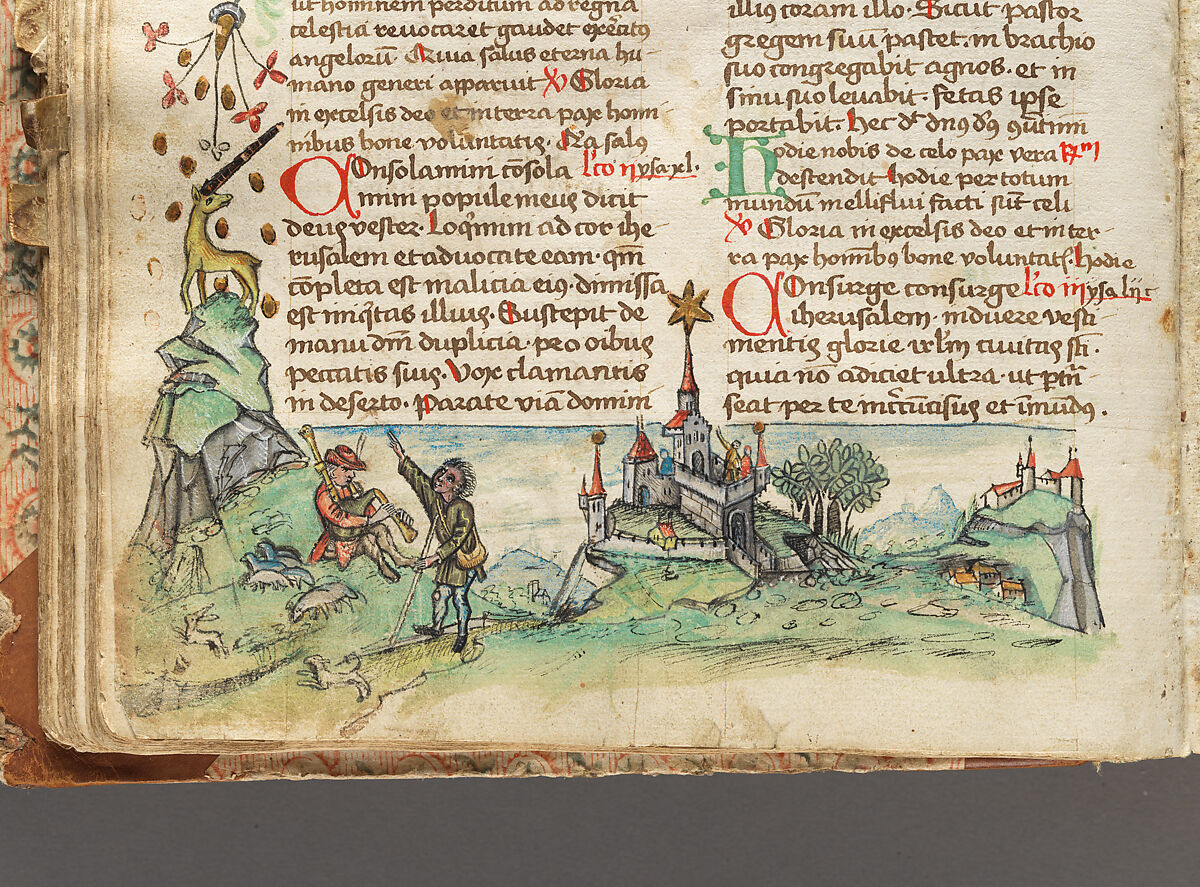 ut hominem perditum ad regna
celestia revocaret gaudet exercitus
angelorū. Quia salus eterna hu-
mano generi apparuit ℣ Gloria
in excelsis deo et in terra pax homi
nibus bone voluntatis. Qa salꝯ
Consolamini cōsola lc̄o ij ysa. xl.
mini popule meus dicit
deus vester. Loqimini ad cor ihe-
rusalem et advocate eam. qm̄
cōpleta est malicia eiꝯ. dimissa
est iniqitas illius. Suscepit de
manu dm̄ duplicia. pro oibus
peccatis suis. Vox clamantis
in deserto. Parate viā domini
illiꝯ coram illo. Sicut pastor
gregem suū pascet. in brachio
suo congregabit agnos. et in
sinu suo levabit. fetas ipse
portabit. Hec
Hodie nobis de celo pax vera
descendit. Hodie per totum
mundū melliflui facti sūt celi
℣ Gloria in excelsis deo et in ter-
ra pax homībꝯ bone voluntat̄. Hodie
Consurge consurge lc̄o iij ysa lij
iherusalem. induere vesti
mentis glorie ihrl̄m civitas sc̄i.
quia nō adiciet ultra. ut
seat per te incircūcisus et īmūdꝯ.